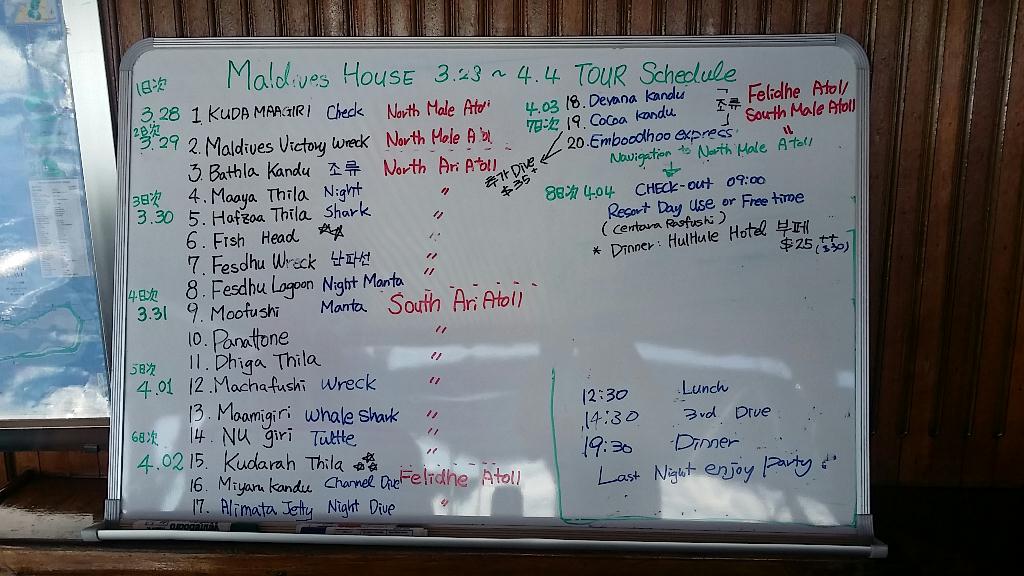 Maldives House 3.23 ~ 4.4 TOUR Schedule
1日次
3.28 1 KUDA MAAGIRI Check North Male Atoll
2日次
3.29 2. Maldives Victory Wreck North Male Atoll
3. Bathla Kandu 조류 North Ari Atoll
4. Maaya Thila Night "
3日次
3.30 5. Hafzaa Thila Shark "
6. Fish Head ☆☆ "
7. Fesdhu Wreck 난파선 "
8. Fesdhu Lagoon Night Manta "
4日次
3.31 9. Moofushi Manta South Ari Atoll
10. Panattone "
11. Dhiga Thila
5日次
4.01 12. Machafushi Wreck "
13. Maamigiri Whale Shark "
6日次 14. NU giri Tuttle "
4.02 15. Kudarah Thila ☆☆☆
16. Miyaru Kandu Channel Dive Felidhe Atoll
17. Alimata Jetty Night Dive "
4.03 18. Devana Kandu 조류 Felidhe Atoll
7日次 19. Cocoa Kandu South Male Atoll
20. Emboodhoo express "
추가 Dive
$35+
Navigation to North Male Atoll
8日次 4.04 CHECK-out 09:00
Resort Day Use or Free time
(Centara Rasfushi)
* Dinner: Hulhule Hotel 부페
$25++ ($30)
12:30 Lunch
14:30 3rd Dive
19:30 Dinner
Last Night enjoy party